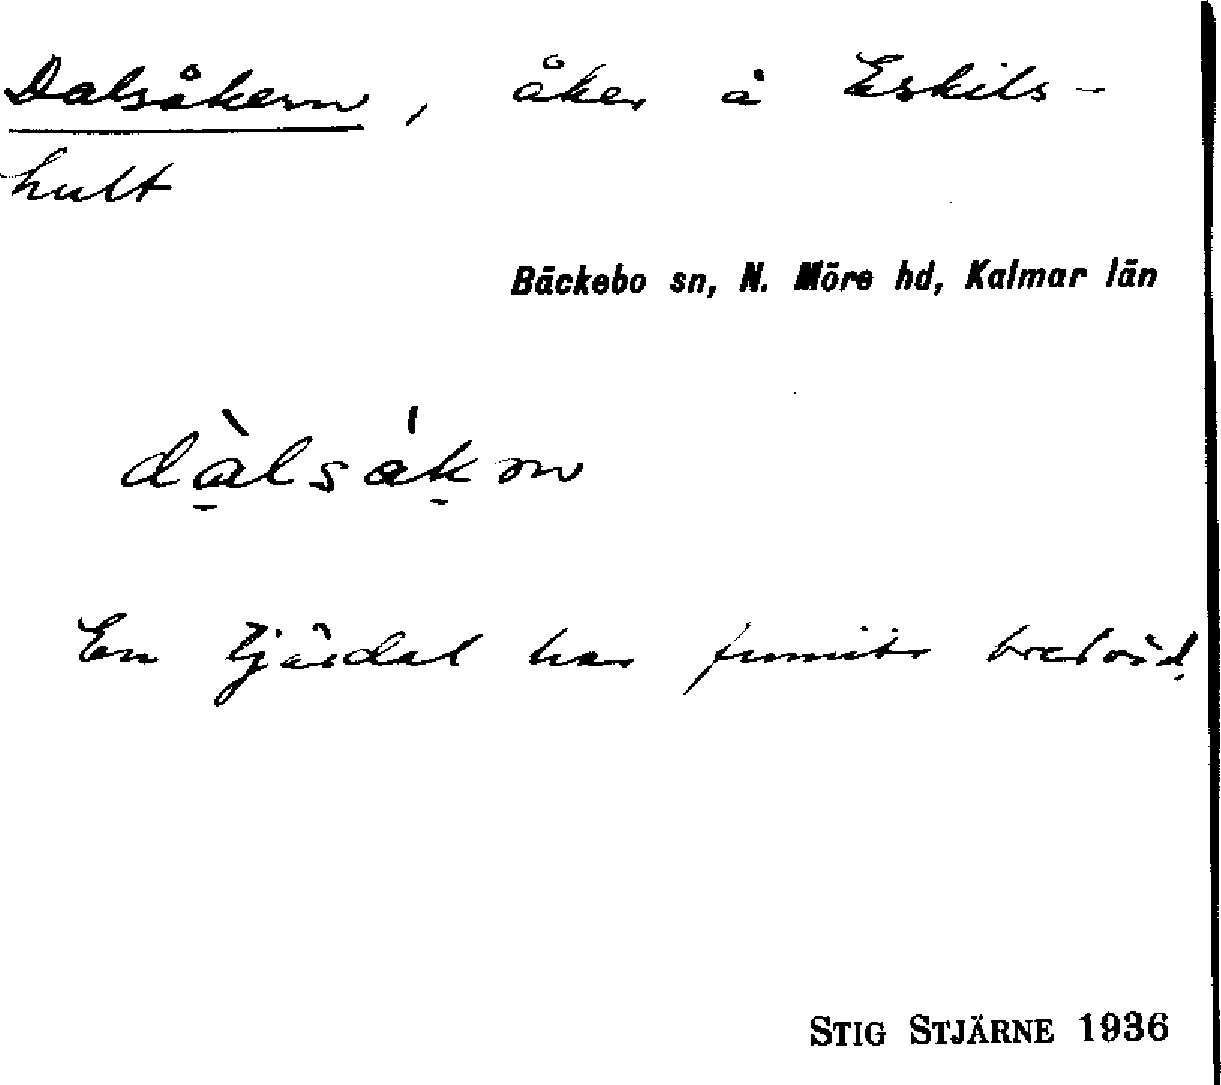 Dalsåkern, åker å Eskils-
hult
Bäckebo sn, N. Möre hd, Kalmar län
dàlsåkɷn
En tjärdal har funnits bredvid.
STIG STJÄRNE 1936